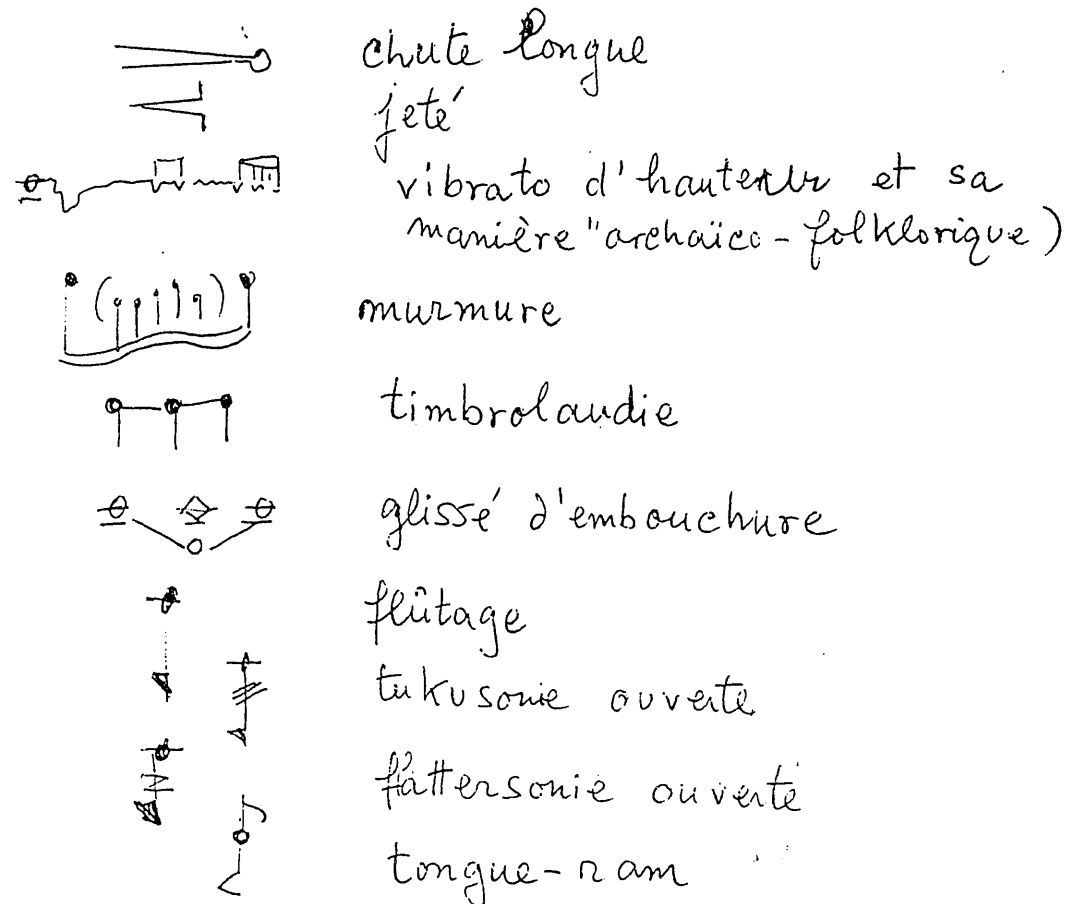 chute longue
jeté
vibrato d'hauteur et sa
manière "archaïco-folklorique)
murmure
timbrolaudie
glissé d'embouchure
flûtage
tukusonie ouverte
flattersonie ouverte
tongue-ram